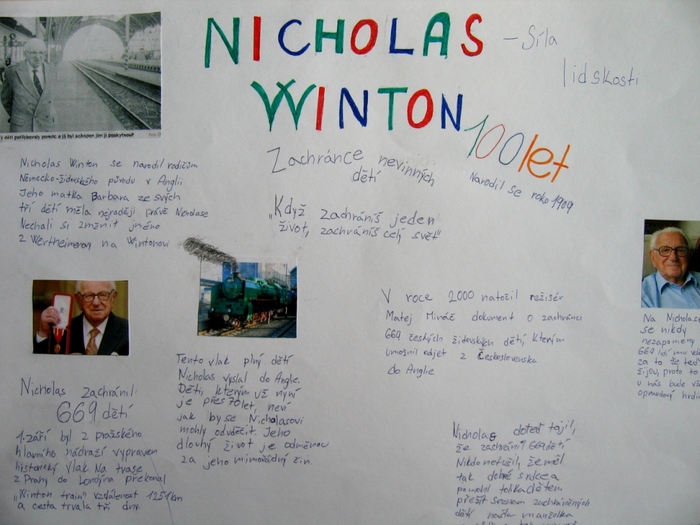 NICHOLAS
WINTON
– Síla
lidskosti
100 let
Narodil se roku 1909
Zachránce nevinných
dětí
„Když zachráníš jeden
život, zachráníš celý svět"
Nicholas Winton se narodil rodičům
Německo-židovského původu v Anglii
Jeho matka Barbara ze svých
tří dětí měla nejraději právě
Nechali si změnit jméno
z Wertheimerov na Wintonovi
Nicholas zachránil
669 dětí
1. září byl z pražského
hlavního nádraží vypraven
historický vlak Na trase
z Prahy do Londýna překonal
„Winton train" vzdálenost 1251km
a cesta trvala tři dny
Tento vlak plný dětí
Nicholas vyslal do Anglie.
Děti, kterým už nyní
je přes 70 let, neví
jak by se Nicholasovi
mohly odvděčit. Jeho
dlouhý život je odměnou
za jeho mimořádný čin.
V roce 2000 natočil režisér
Matej Mináč dokument o zachránci
669 českých židovských dětí, kterým
umožnil odjet z Československa
do Anglie
Na Nicholase
se nikdy
nezapomene
669 lidí mu
za to že
žijou, proto to
u nás bude
opravdový
Nicholas doteď tajil,
že zachránil 669 dětí
Nikdo netušil, že měl
tak dobré srdce a
pomohl tolika dětem
přežít Seznam zachráněných
dětí našla manželka